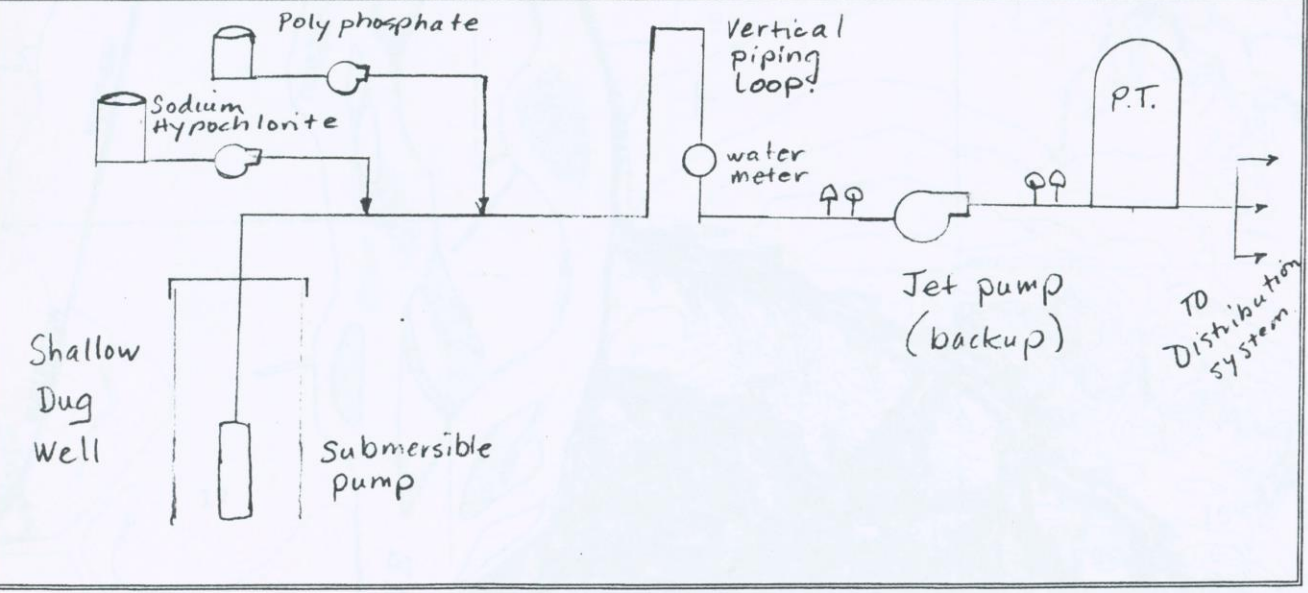 Polyphosphate
Sodium
Hypochlorite
Vertical
piping
Loop!
water
meter
P.T.
Jet pump
(backup)
TO
Distribution
system
Shallow
Dug
Well
Submersible
pump